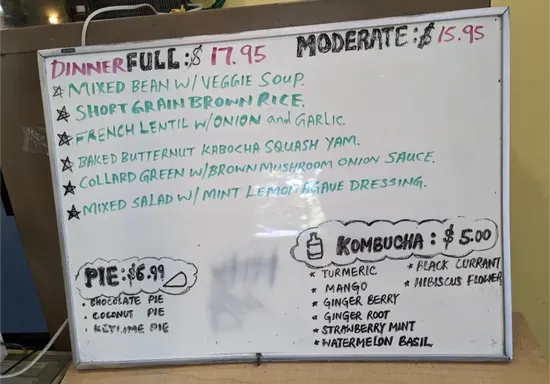 DINNER FULL: $ 17.95 MODERATE: $ 15.95
MIXED BEAN W/ VEGGIE SOUP.
SHORT GRAIN BROWN RICE.
FRENCH LENTIL W/ONION and GARLIC.
BAKED BUTTERNUT KABOCHA SQUASH YAM.
COLLARD GREEN W/BROWN MUSHROOM ONION SAUCE.
MIXED SALAD W/ MINT LEMON AGAVE DRESSING.
PIE: $6.99
CHOCOLATE PIE
COCONUT PIE
KEYLIME PIE
KOMBUCHA: $ 5.00
TURMERIC
MANGO
GINGER BERRY
GINGER ROOT
STRAWBERRY MINT
WATERMELON BASIL
BLACK CURRANT
HIBISCUS FLOWER